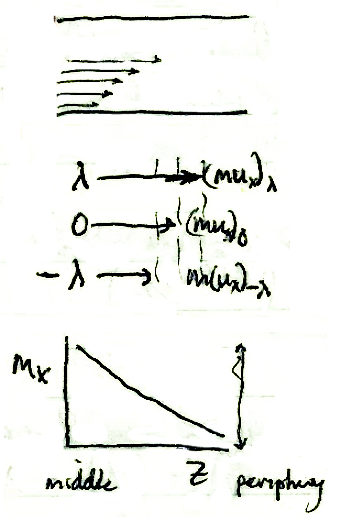 λ (mux)λ
0 (mux)0
-λ m(ux)-λ
Mx
Z
middle periphery